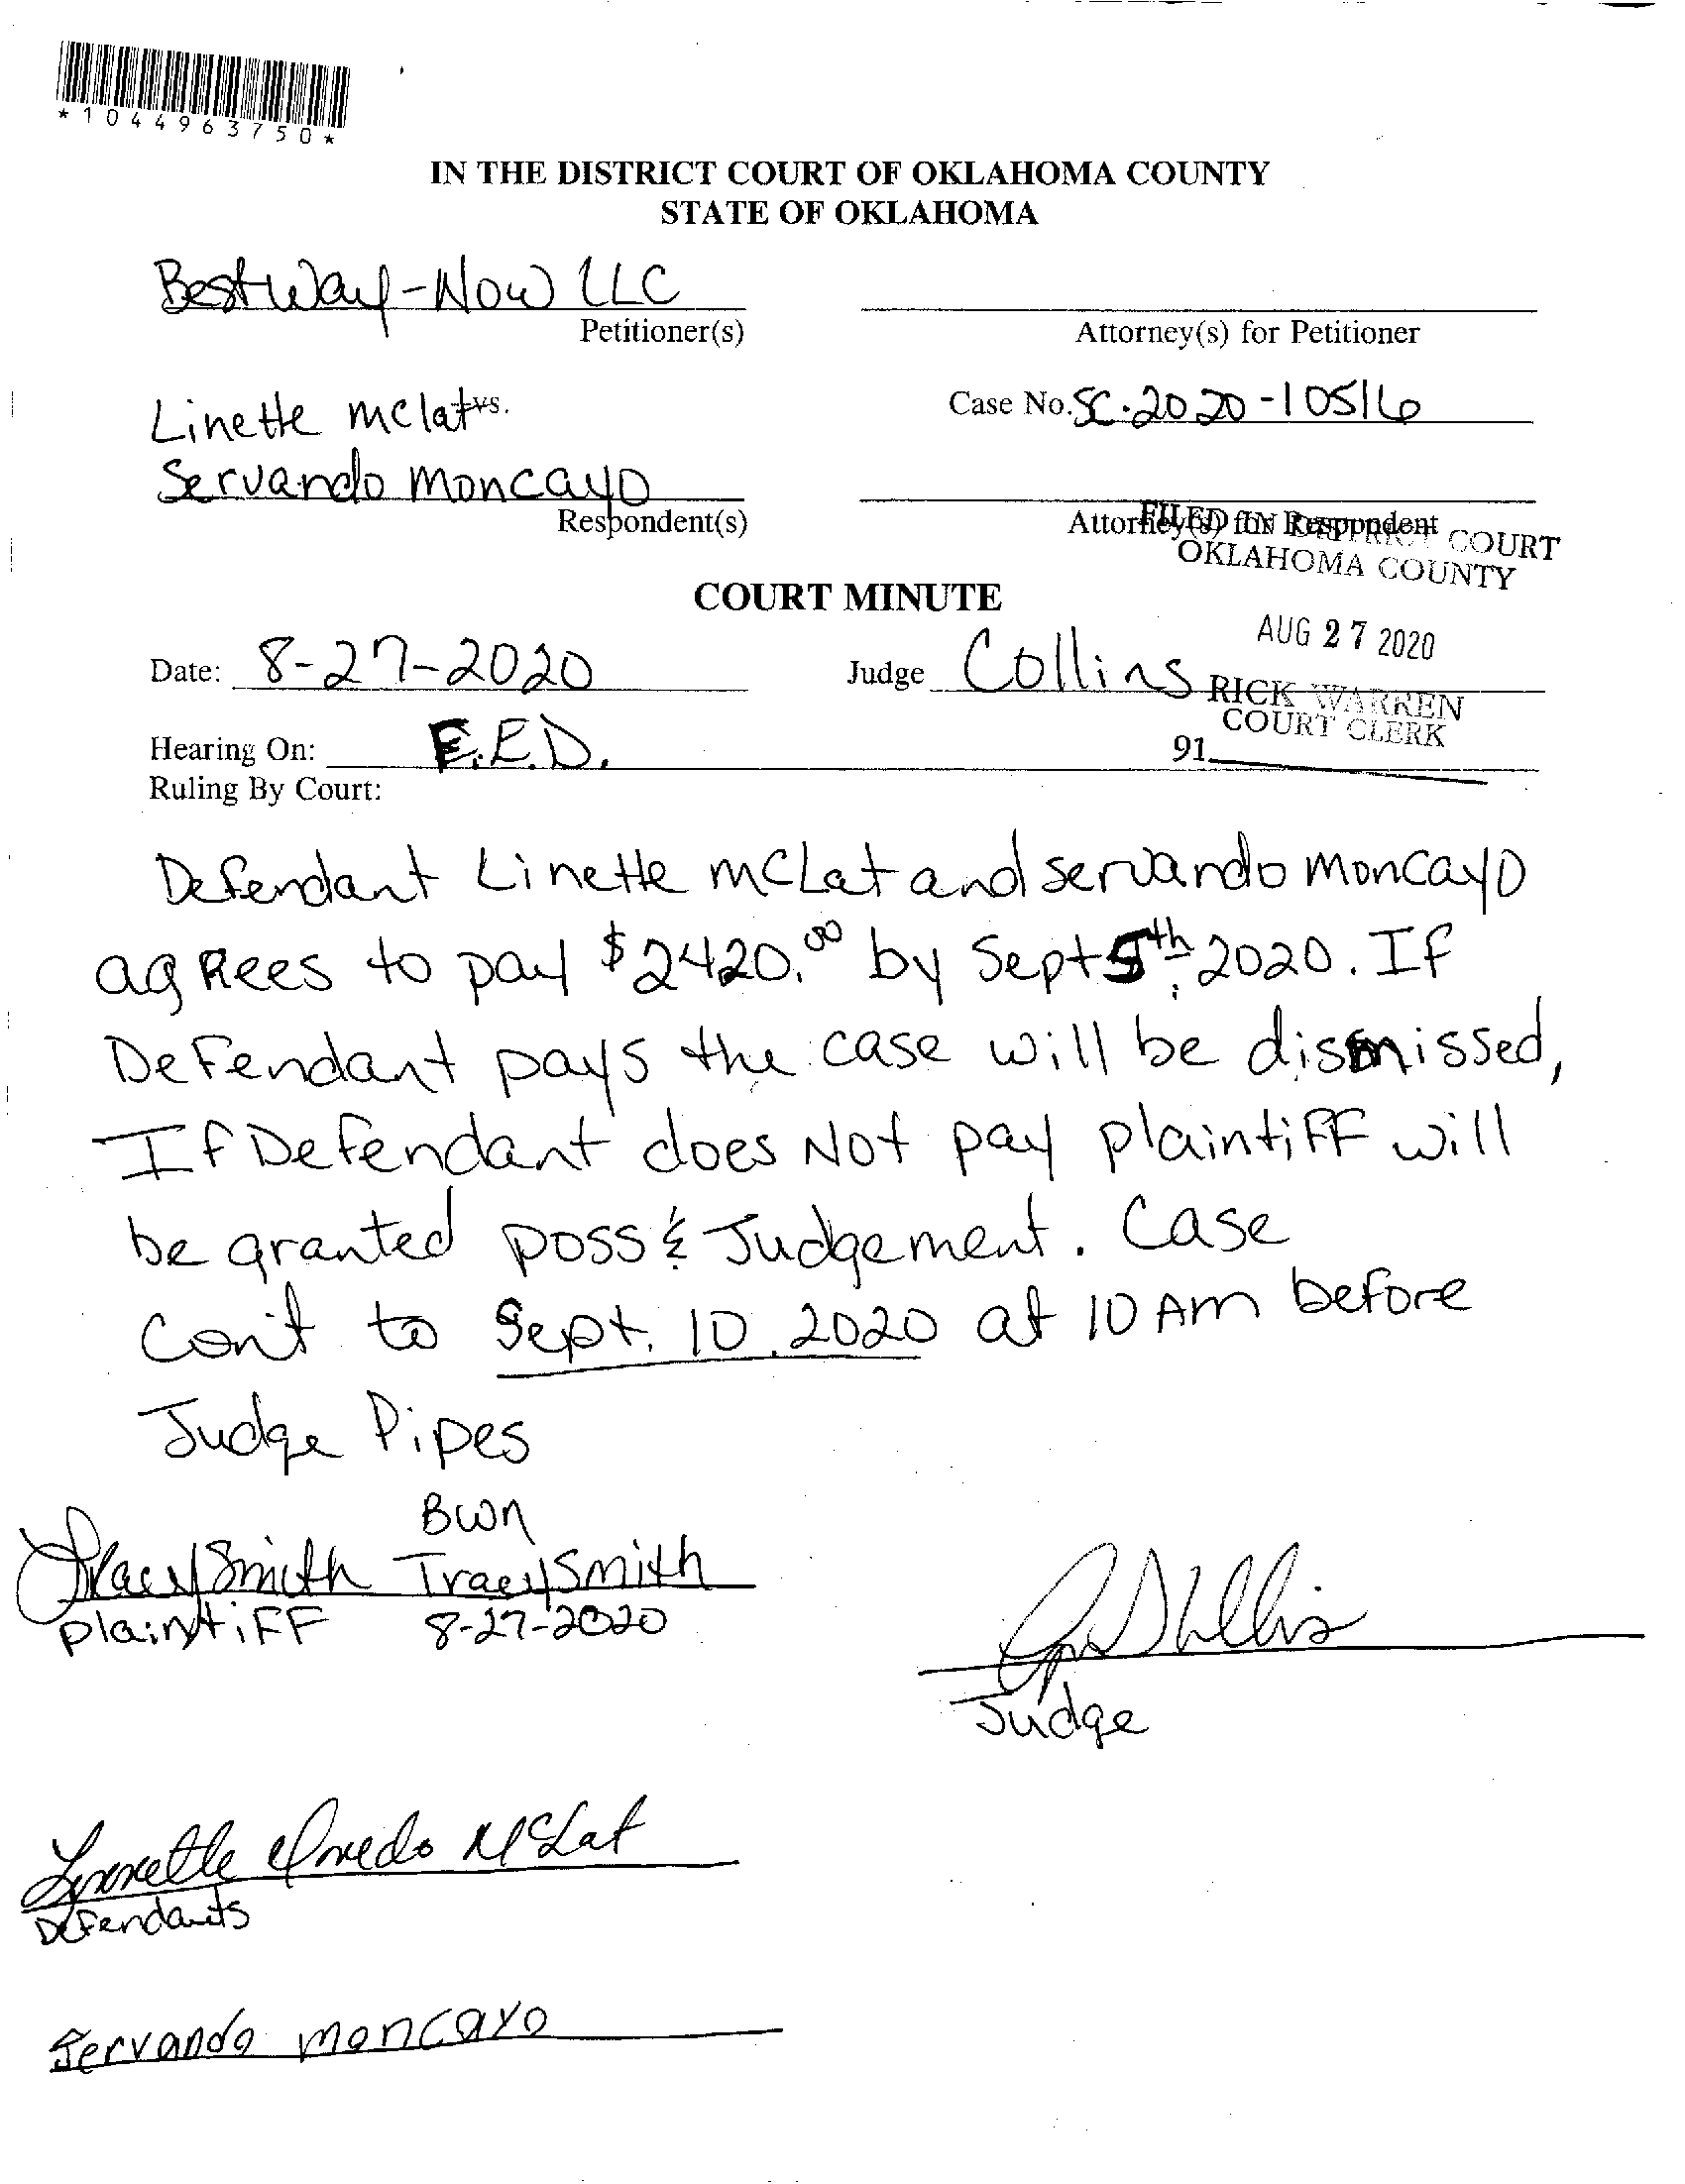 *1044963750*
IN THE DISTRICT COURT OF OKLAHOMA COUNTY
STATE OF OKLAHOMA
Bestway-Now LLC
Petitioner(s)
Attorney(s) for Petitioner
Linette McLat vs.
Case No. SC-2020-10516
Servando Moncayo
Respondent(s)
Attorney(s) for Respondent
FILED IN DISTRICT COURT
OKLAHOMA COUNTY
COURT MINUTE
AUG 27 2020
Date: 8-27-2020
Judge Collins
RICK WARREN
COURT CLERK
Hearing On: E.E.D.
91
Ruling By Court:
Defendant Linette McLat and Servando Moncayo
agrees to pay $2420.00 by Sept 5th, 2020. If
Defendant pays the case will be dismissed,
If Defendant does Not pay plaintiff will
be granted poss & Judgement. Case
Con't to Sept. 10, 2020 at 10 Am before
Judge Pipes
BWN
Tracy Smith Tracy Smith
plaintiff 8-27-2020
Judge
McLat
Defendants
Servando moncayo